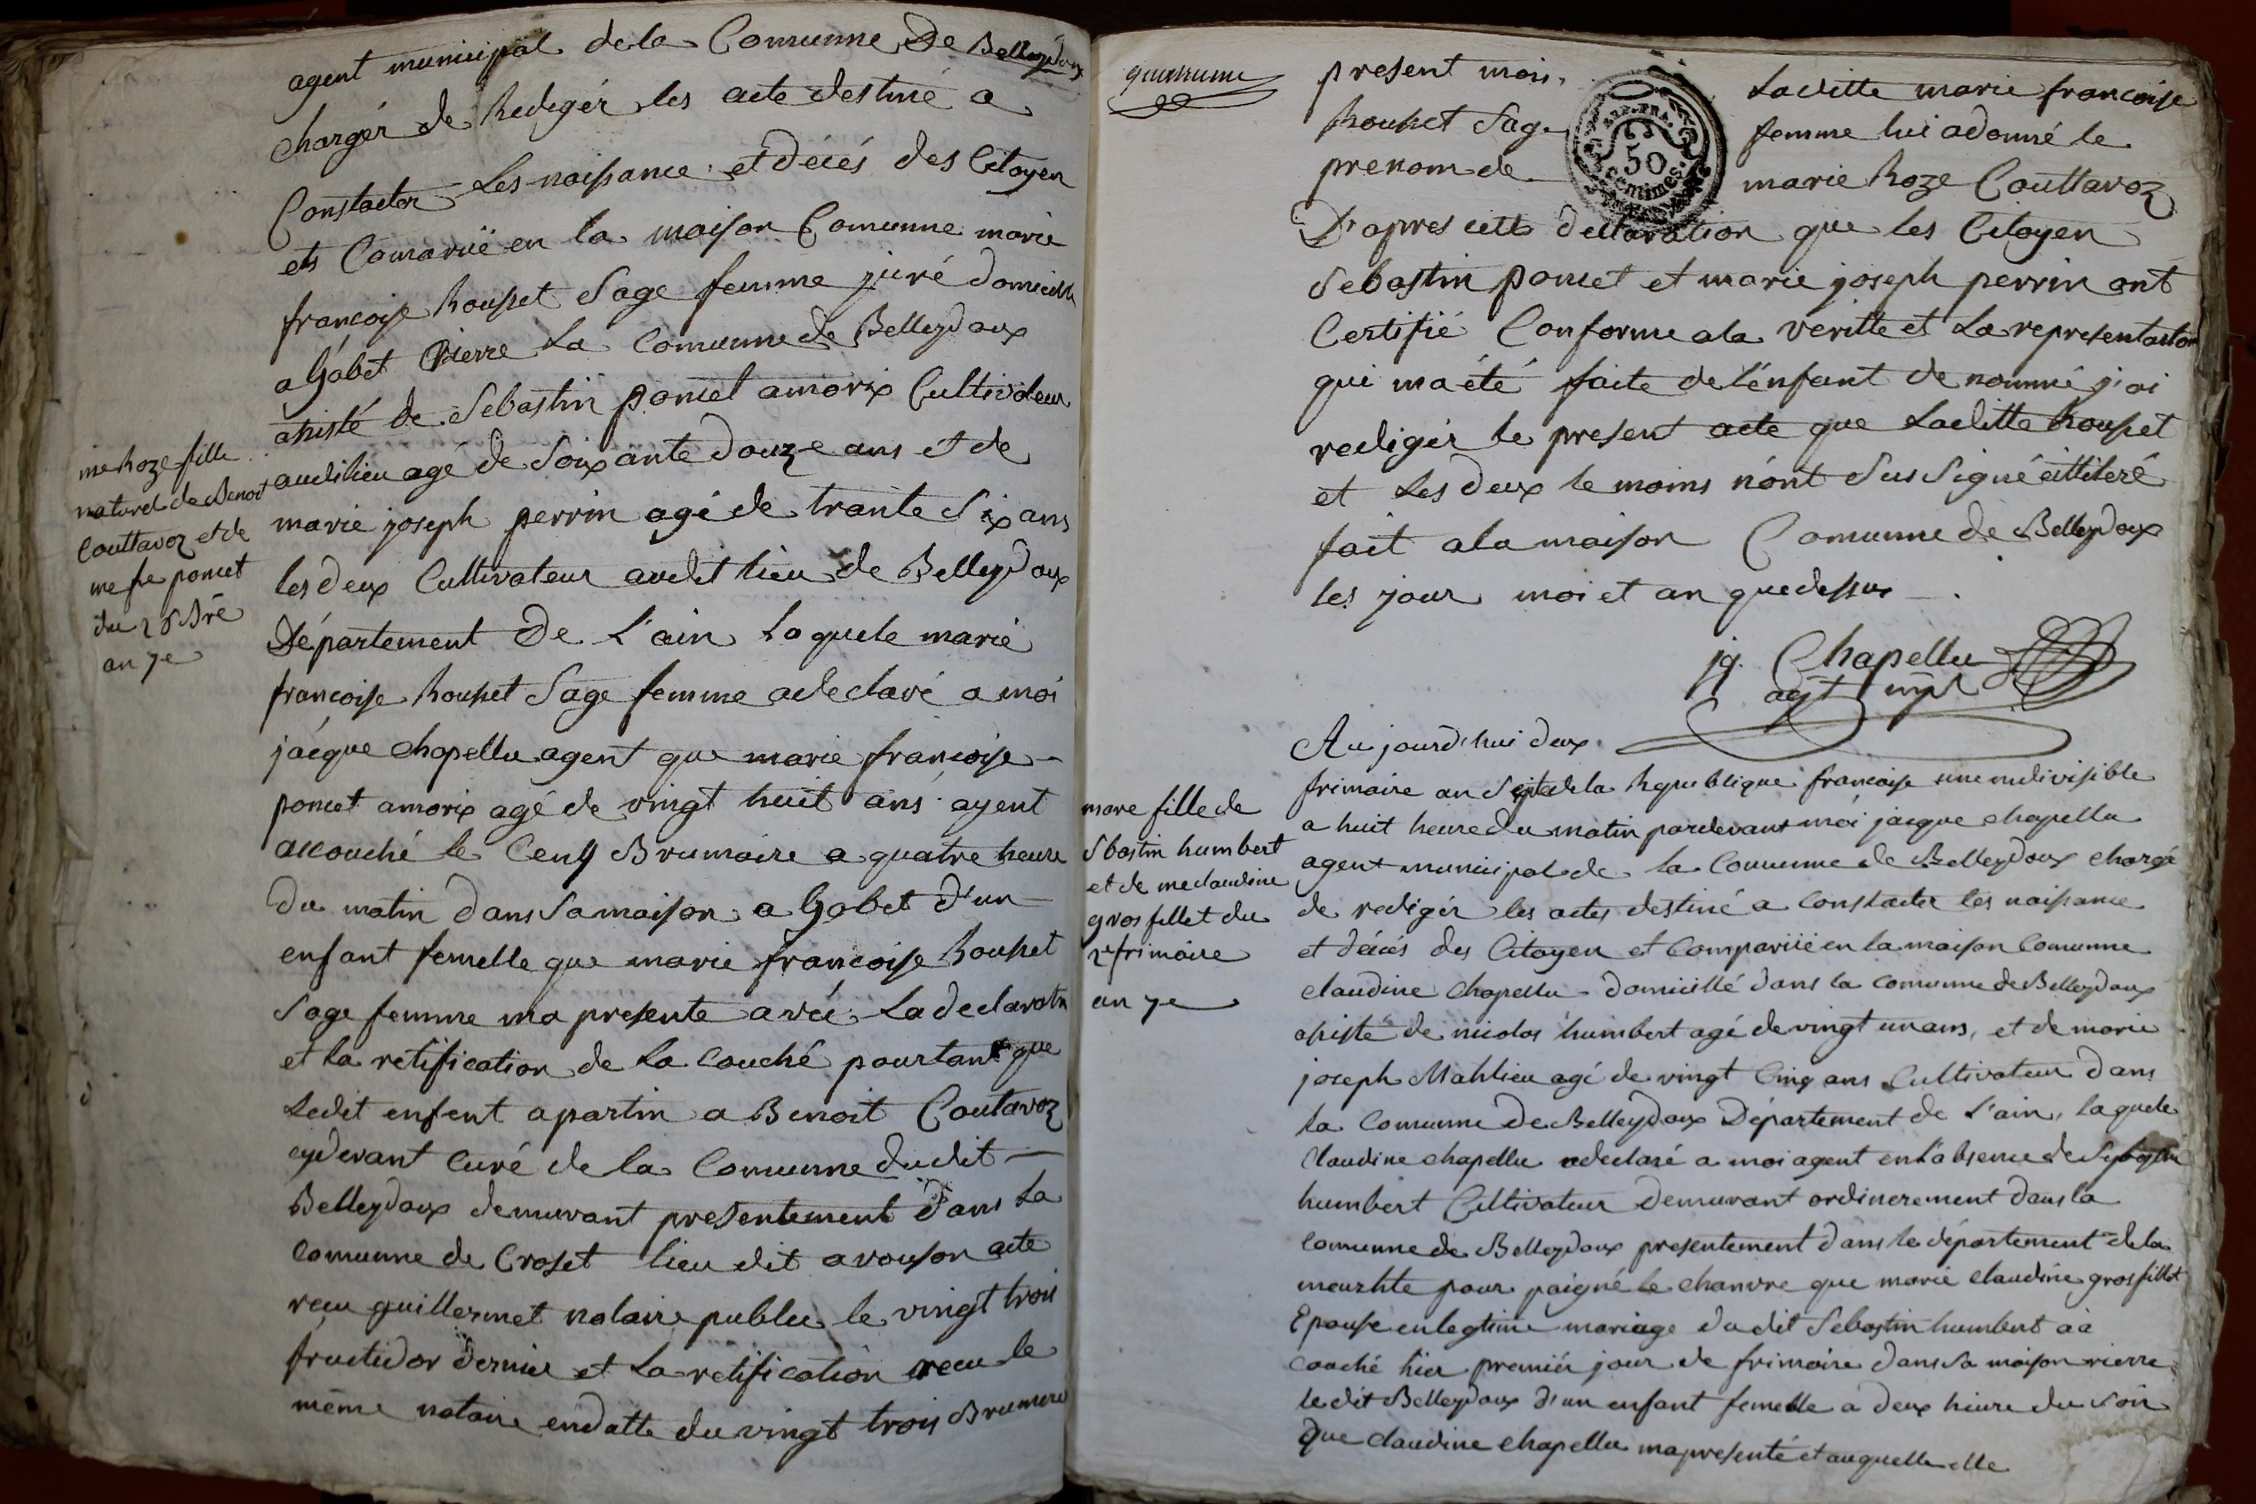 agent municipal dela Comunne De Belleydoux
chargér de Redigér les acte destiné a
Constacter Les naissance et décés des Citoyen
ets Comaruë en la maison Comunne marie
francoise Rousset Sage femme juré domicillé
a Gobet Rierre La Comunne de Belleydoux
assisté de Sebastin poncet amorix Cultivateur
audilieu agé de Soixante douze ans et de
marie joseph perrin agé de trante Six ans
les deux Cultivateur audit lieu de Belleydoux
Département De L'ain Laquele marie
francoise Rousset Sage femme adeclaré a moi
jacque chapellu agent que marie francoise
poncet amorix agé de vingt huit ans ayent
accouché le Cenq Brumaire a quatre heure
Du matin Dans Samaison a Gobet d'un
enfant femelle que marie francoise Rousset
Sage femme ma presente avéc La declaration
et La retification de La Couché pourtant que
Ledit enfent apartin a Benoit Coutavoz
cydevant curé de la Comunne dudit
Belleydoux demurant presentement Dans La
Comunne de Croset lieu dit avouson acte
recu guillermet notaire publee le vingt trois
fructidor dernier et La retification recu le
même notaire endatte du vingt trois Brumere
me Roze fille
naturel de Benoit
Couttavoz et de
me fse poncet
du 26 Bre
an 7e
present mois, Laditte marie francoise
Rousset Sage femme lui adonné le
prenom de marie Roze Couttavoz
REP. FRA.
50
centimes.
D'apres cette declaration que les Citoyen
Sebastin poncet et marie joseph perrin ont
Certifié Conforme ala veritte et La representation
qui ma été faite de l'énfant de nommé j'ai
rediger le present acte que Laditte Rousset
et Les deux te moins n'ont Sus Signé
fait ala maison Comunne de Belleydoux
les jour moi et an quedessus
jq. Chapellu
agt mpl
Au jourd'hui deux
frimaire an Sept dela Republique francoise une indivisible
a huit heure du matin pardevant moi jacque chapellu
agent municipal de la Comunne de Belleydoux chargé
de redigér les actes destiné a constacter les naissance
et décés des Citoyen et Comparuë en la maison Comunne
claudine chapellu domicillé dans la comunne de Belleydoux
assisté de nicolas humbert agé de vingt un ans, et de marie
joseph Mahlieu agé de vingt Cinq ans Cultivateur Dans
La Comunne De Belleydoux Département de L'ain, laquele
Claudine chapellu adeclaré a moi agent en l'absence de Sebastin
humbert Cultivateur Demurant ordinerement Dans la
Comunne de Belleydoux presentement Dans le département de la
meurhte pour paigné le chanvre que marie claudine grosfillet
Epouse en legtime mariage du dit Sebastin humbert aa
couché hier premier jour de frimaire dans Sa maison rierre
le dit Belleydoux d'un enfant femelle a deux heure du Soir
Que claudine chapellu ma presenté et auquelle elle
mare fille de
Sbastin humbert
et de me claudine
grosfillet du
2e frimaire
an 7e